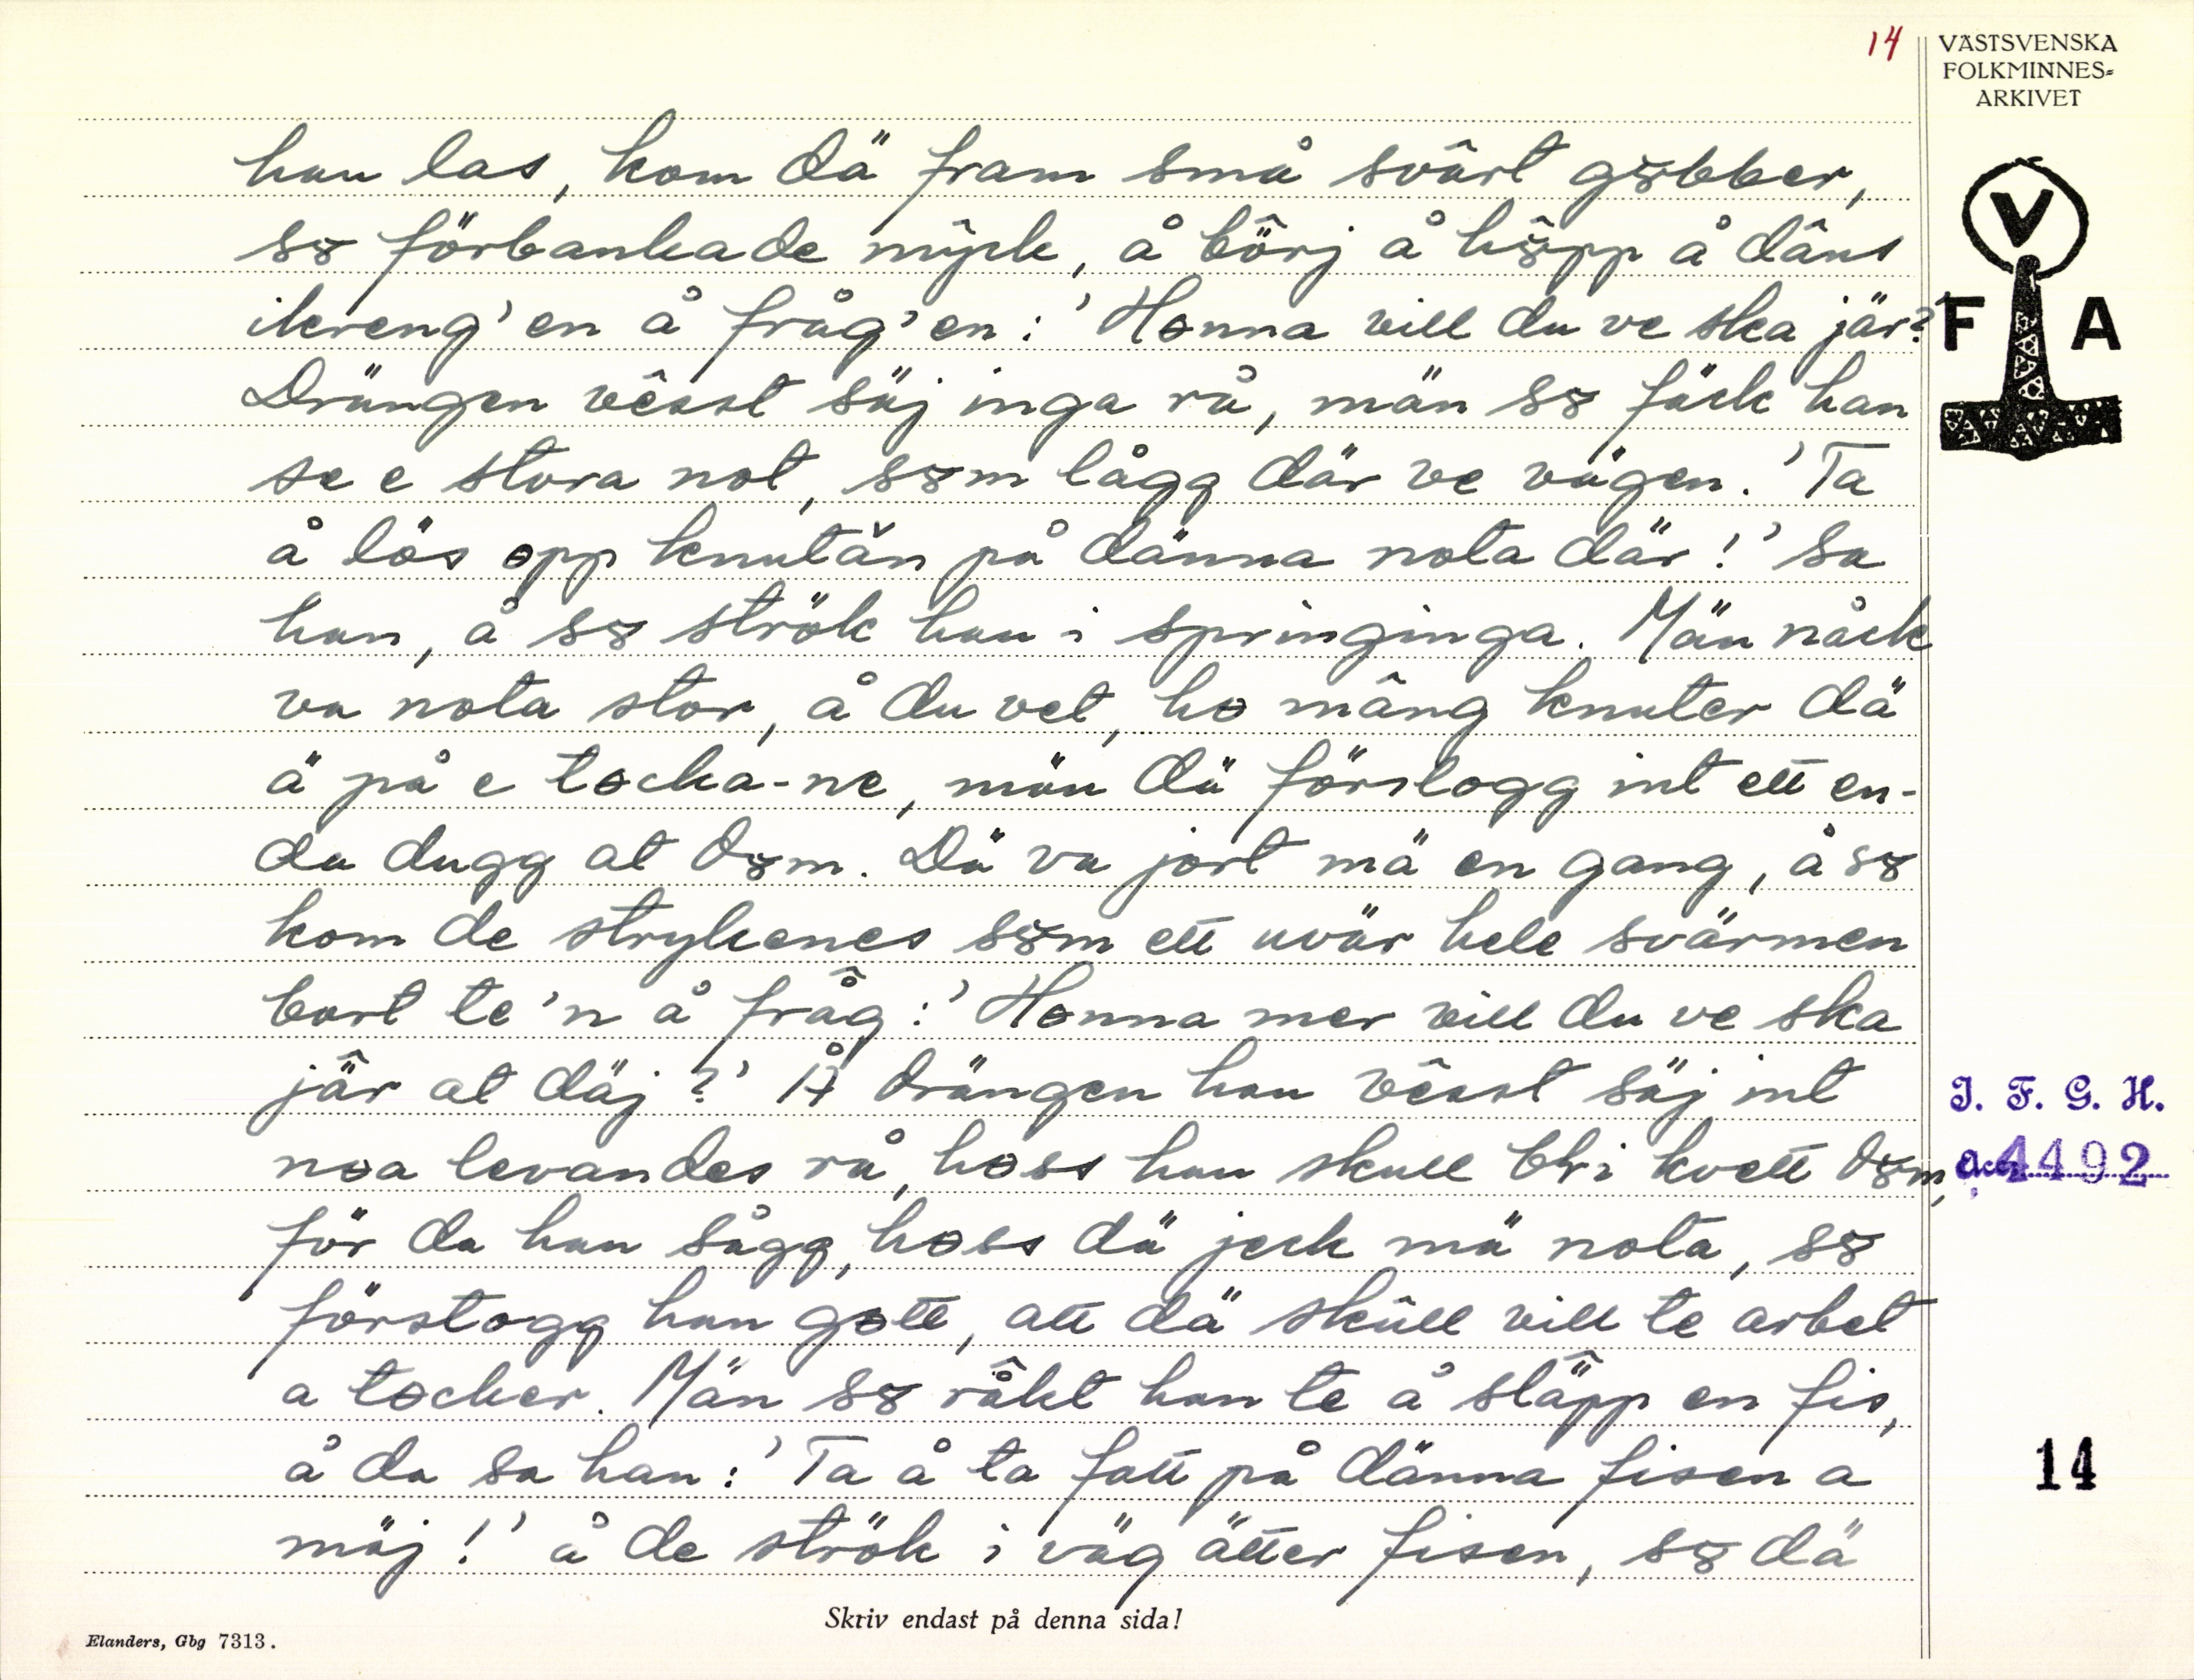 14
VÄSTSVENSKA
FOLKMINNES=
ARKIVET
han las, kom dä fram små svârt gȣbber,
sȣ förbankade mŷck, å bôrj å hȣ̂pp å dâns
ikreng'en å fråg'en: 'Hɵnna vill du ve ska jär?'
Drängen vêsst säj inga rå, män sȣ fäck han
se e stora not, sȣm lågg där ve vägen. 'Ta
å lös ɵpp knutăn på dänna nota där!' sa
han, å sȣ strök han i springinga. Män nåck
va nota stor, å du vet, hɵ mâng knuter dä
ä på e tɵcka-ne, män dä förslogg int ett en-
da dugg at dȣm. Dä va jort mä en gang, å sȣ
kom de strykenes sȣm ett uvär hele svärmen
bort te'n å fråg: 'Hɵnna mer vill du ve ska
jär at däj?' Å drängen han vêsst säj int
nɵa levandes rå, hɵss han skull bli kvett dȣm,
för da han sågg, hɵss dä jeck mä nota, sȣ
förstogg han gɵtt, att dä skûll vill te arbet
a tɵcker. Män sȣ råkt han te å släpp en fis,
å da sa han: 'Ta å ta fatt på dänna fisen a
mäj!' å de strök i väg ätter fisen, sȣ dä
V
F A
I. F. G. H.
acc. 4492
14
Skriv endast på denna sida!
Elanders, Gbg 7313.